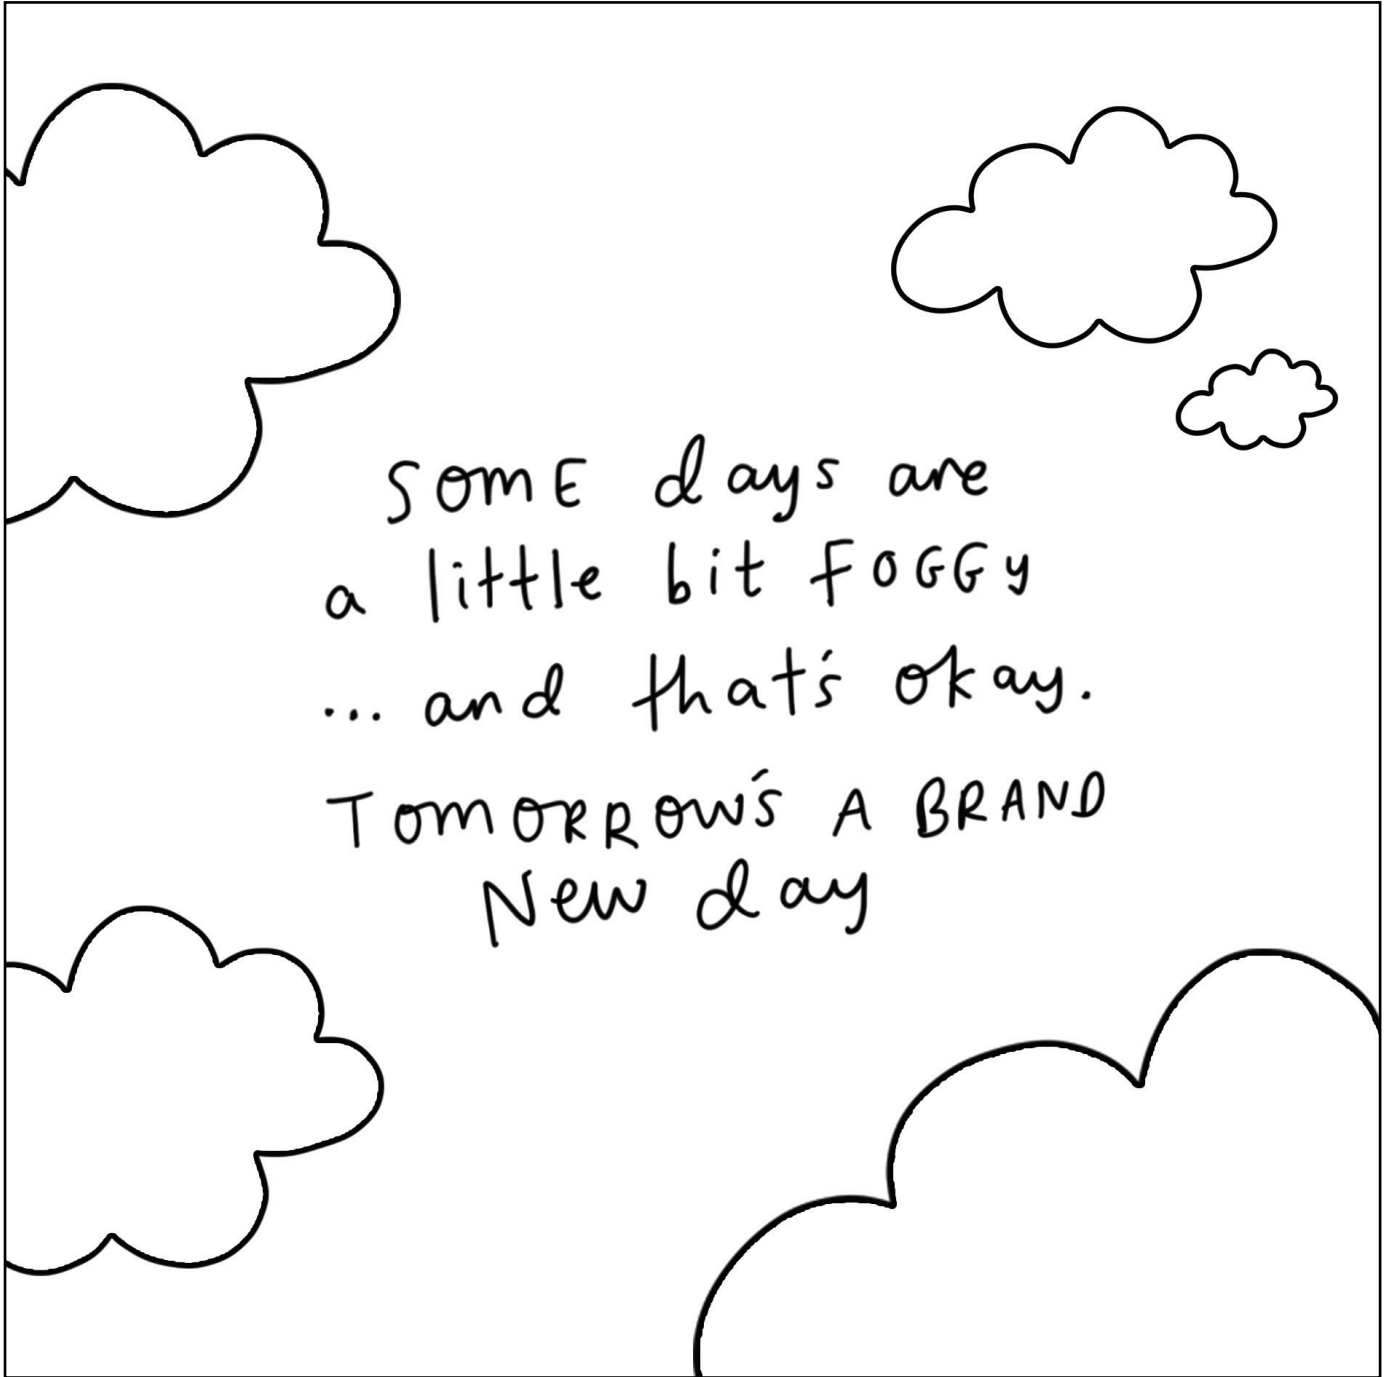 SOME days are
a little bit FOGGy
... and that's okay.
TOMORROW'S A BRAND
New day